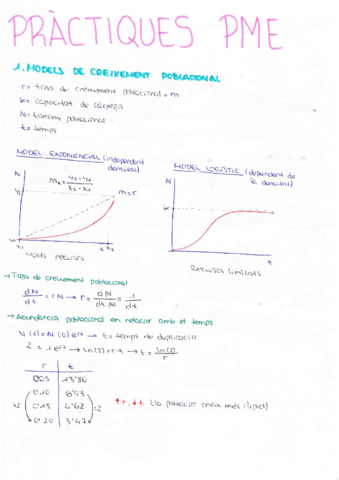 PRÀCTIQUES PME
1. MODELS DE CREIXEMENT POBLACIONAL
r = taxa de creixement poblacional = m
k = capacitat de càrrega
N = tamany poblacional
t = temps
MODEL EXPONENCIAL (independent densitat)
MODEL LOGÍSTIC (dependent de la densitat)
N
m = r
x1
x2
t
Molts recursos
N
k
t
Recursos limitats
→ Taxa de creixement poblacional
dN/dt = rN → r = dN/dt·N = 1/dt
→ Abundància poblacional en relació amb el temps
N(t) = N(0)e^rt → t = temps de duplicació
2 = 1e^rt → ln(2) = r·t → t = ln(2)/r
r t
0'05 13'86
0'10 6'93
0'15 4'62
0'20 3'47
x2
:2
↑r, ↓t (la població creix més ràpid)